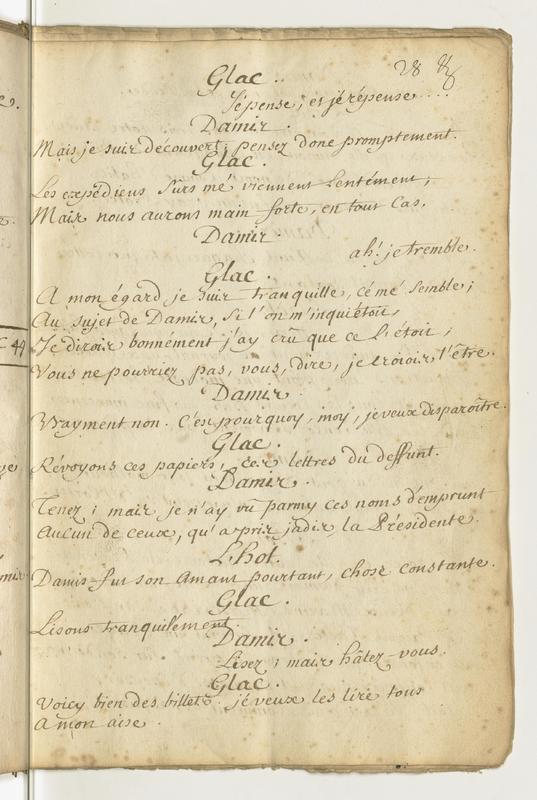 28
Glac..
Je pense, et je répense....
Damis.
Mais je suis decouvert, pensez donc promptement.
Glac.
Les expédiens surs mé viennent lentément,
Mais nous aurons main forte, en tout cas.
Damis
ah! je tremble.
Glac.
A mon égard je suis tranquille, cé mé semble;
Au sujet de Damis, si l'on m'inquiétoit,
Je dirois bonnément j'ay crû que ce l'étoit,
Vous ne pourriez pas, vous, dire, je croiois l'être.
Damis.
Vrayment non. C'est pourquoy, moy, je veux disparoître.
Glac.
Révoyons ces papiers, ces lettres du deffunt.
Damis.
Tenez; mais je n'ay vû parmy ces noms d'emprunt
Aucun de ceux, qu'a pris jadis la Présidente.
L'hot.
Damis fut son Amant pourtant, chose constante.
Glac.
Lisons tranquilément.
Damis.
Lisez; mais hâtez-vous.
Glac.
Voicy bien des billets. jé veux les lire tous
A mon aise.